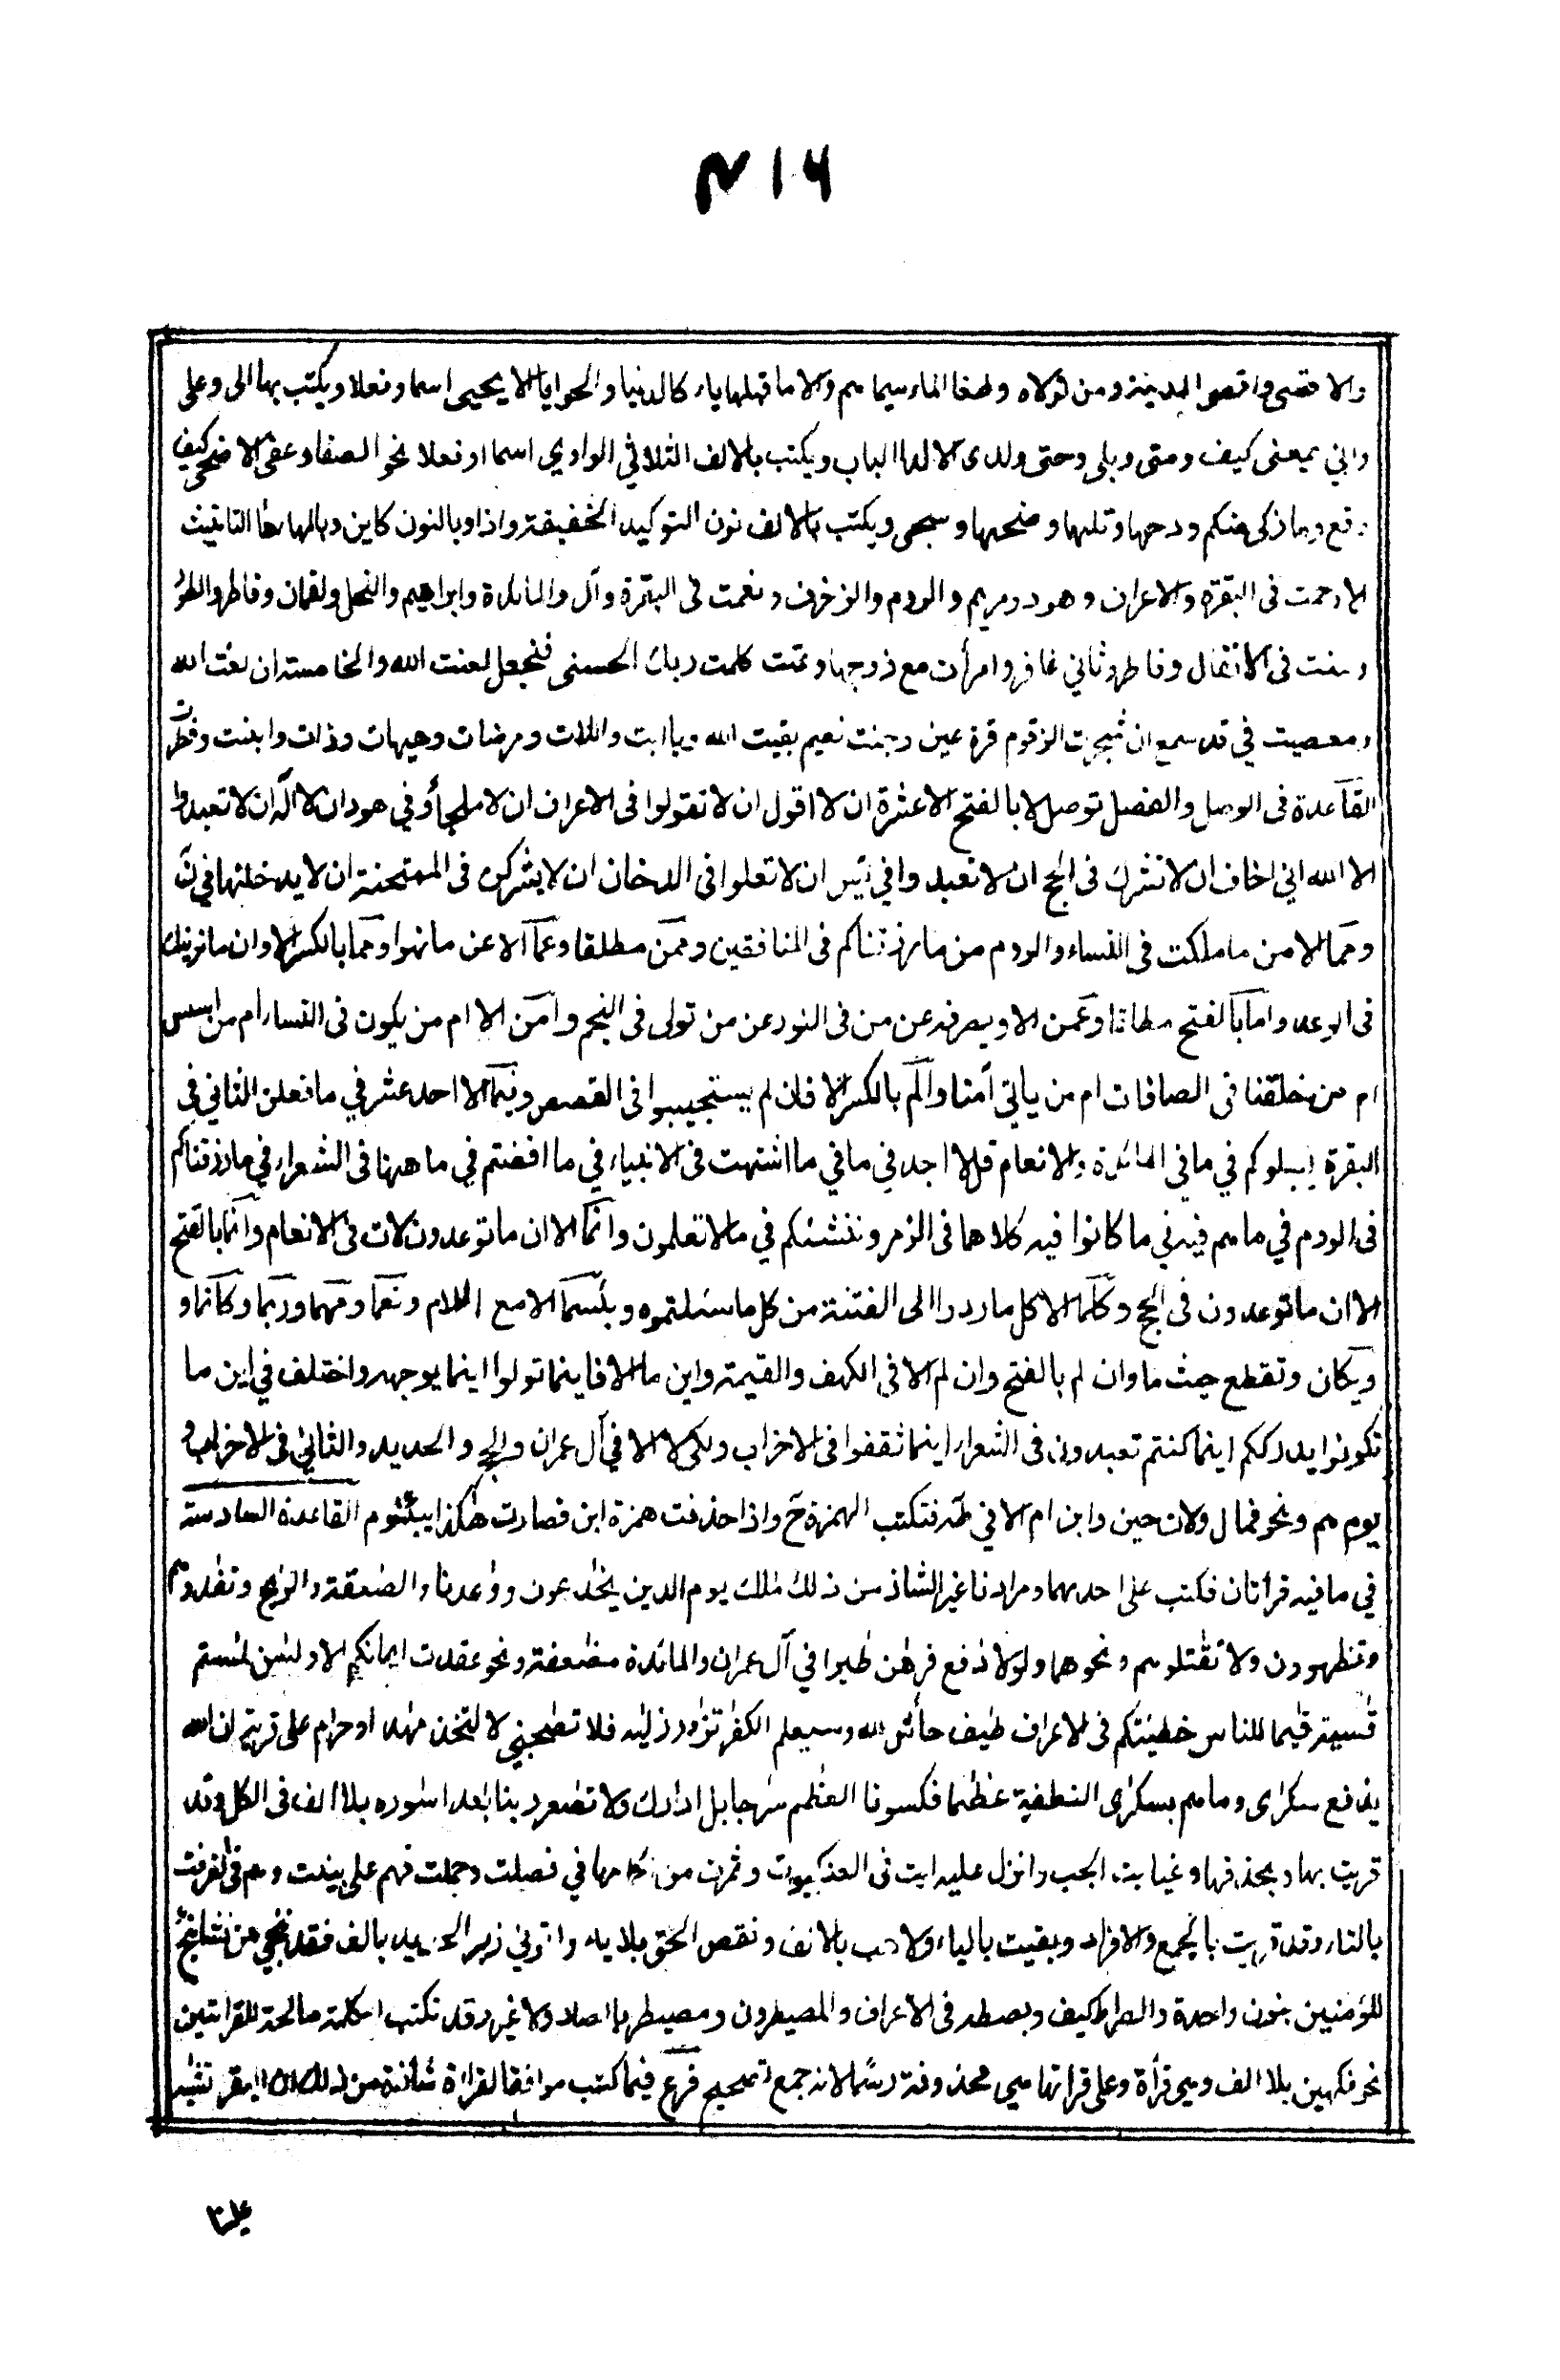 ۴۱۶
والاقصى واقصو المدينة ومن تولاه وطغا الماء سيماهم والا ما قبلها ياء كالدنيا والحوايا الا يحيى اسما وفعلا ويكتب بها الى وعلى
واني بمعنى كيف ومتى وبلى وحتى ولدى الا لدا الباب ويكتب بالالف الثلاثي الواوي اسما او فعلا نحو الصفا وعفى الا ضحى كيف
وقع وما زكى منكم ودحها وتلها وضحها وسجى ويكتب بالالف نون التوكيد الخفيفة واذا وبالنون كاين وبالهاء ها التانيث
الا رحمت فى البقرة والاعراف وهود ومريم والروم والزخرف ونعمت فى البقرة وآل والمائدة وابراهيم والنحل ولقمان وفاطر والطور
وسنت فى الانفال وفاطر وثاني غافر وامرأت مع زوجها وتمت كلمت ربك الحسنى فنجعل لعنت الله والخامسة ان لعنت الله
ومعصيت في قد سمع ان شجرت الزقوم قرة عين وجنت نعيم بقيت الله ويا ابت واللات ومرضات وهيهات وذات وابنت وفطرت
القاعدة فى الوصل والفصل توصل الا بالفتح الا عشرة ان لا اقول ان لا تقولوا فى الاعراف ان لا ملجأ وفي هود ان لا اله ان لا تعبدوا
الا الله اني اخاف ان لا تشرك فى الحج ان لا تعبدوا في يس ان لا تعلوا فى الدخان ان لا يشركن فى الممتحنة ان لا يدخلنها في ن
ومما الا من ما ملكت فى النساء والروم من ما رزقناكم فى المنافقين وممن مطلقا وعما الا عن ما نهوا ومما بالكسر الا وان ما نرينك
فى الرعد واما بالفتح مطلقا وعمن الا ويصرفه عن من فى النور عن من تولى فى النجم وامن الا ام من يكون فى النساء ام من اسس
ام من خلقنا فى الصافات ام من يأتي آمنا والم بالكسر الا فان لم يستجيبوا فى القصص وفيما الا احد عشر في ما فعلن الثاني في
البقرة ليبلوكم في ما في المائدة والانعام قل لا اجد في ما في ما اشتهت فى الانبياء في ما افضتم في ما ههنا فى الشعراء في ما رزقناكم
فى الروم في ما هم فيه في ما كانوا فيه كلاهما فى الزمر وننشئكم في ما لا تعلمون وانما الا ان ما توعدون لات فى الانعام وانما بالفتح
الا ان ما توعدون فى الحج وكلما الا كل ما ردوا الى الفتنة من كل ما سئلتموه وبئسما الا مع اللام ونعما ومهما وربما وكانما و
ويكان وتقطع حيث ما وان لم بالفتح وان لم الا فى الكهف والقيمة واين ما الا فاينما تولوا اينما يوجهه واختلف في اين ما
تكونوا يدرككم اينما كنتم تعبدون فى الشعراء اينما ثقفوا فى الاحزاب ولكى لا الا في آل عمران والحج والحديد والثاني فى الاحزاب و
يوم هم ونحو فمال ولات حين وابن ام الا في طه فتكتب الهمزة ح واذا حذفت همزة ابن فصارت هكذا يبنؤم القاعدة السادسة
في ما فيه قرأتان فكتب على احدهما ومرادنا غير الشاذ من ذلك ملك يوم الدين يخدعون ووعدنا والصعقة والريح وتفدوهم
وتظهرون ولا تقتلوهم ونحوهما ولولا دفع فرهن طيرا في آل عمران والمائدة مضعفة ونحو عقدت ايمانكم الاولين لمستم
قسية قيما للناس خطيئتكم فى الاعراف طيف حاش لله وسيعلم الكفر تزور زكية فلا تصحبني لا لتخذت مهدا وحرام على قرية ان الله
يدفع سكرى وما هم بسكرى النطفية عظما فكسونا العظم سرجا بل ادارك ولا تصعر ربنا بعد اسورة بلا الف فى الكل وقد
قريت بها وبحذفها وغيابت الجب وانزل عليه ايت فى العنكبوت وثمرت من اكمامها في فصلت وجملت فهم على بينت وهم فى الغرفت
بالتاء وقد قريت بالجمع والافراد وبقيت بالياء ولاهب بالالف ونقص الحق بلا ياء واتوني زبر الحديد بالف فقد فنجي من نشاء ننج
للمؤمنين بنون واحدة والصراط كيف وبصطة فى الاعراف والمصيطرون ومصيطر بالصاد ولا غير وقد تكتب الكلمة صالحة للقراتين
نحو فكهين بلا الف وهي قرأة وعلى قراتها هي محذوفة رسما لانه جمع تصحيح فرع فيما كتب موافقا لقراءة شاذة من ذلك ان البقر تشبه
علينا